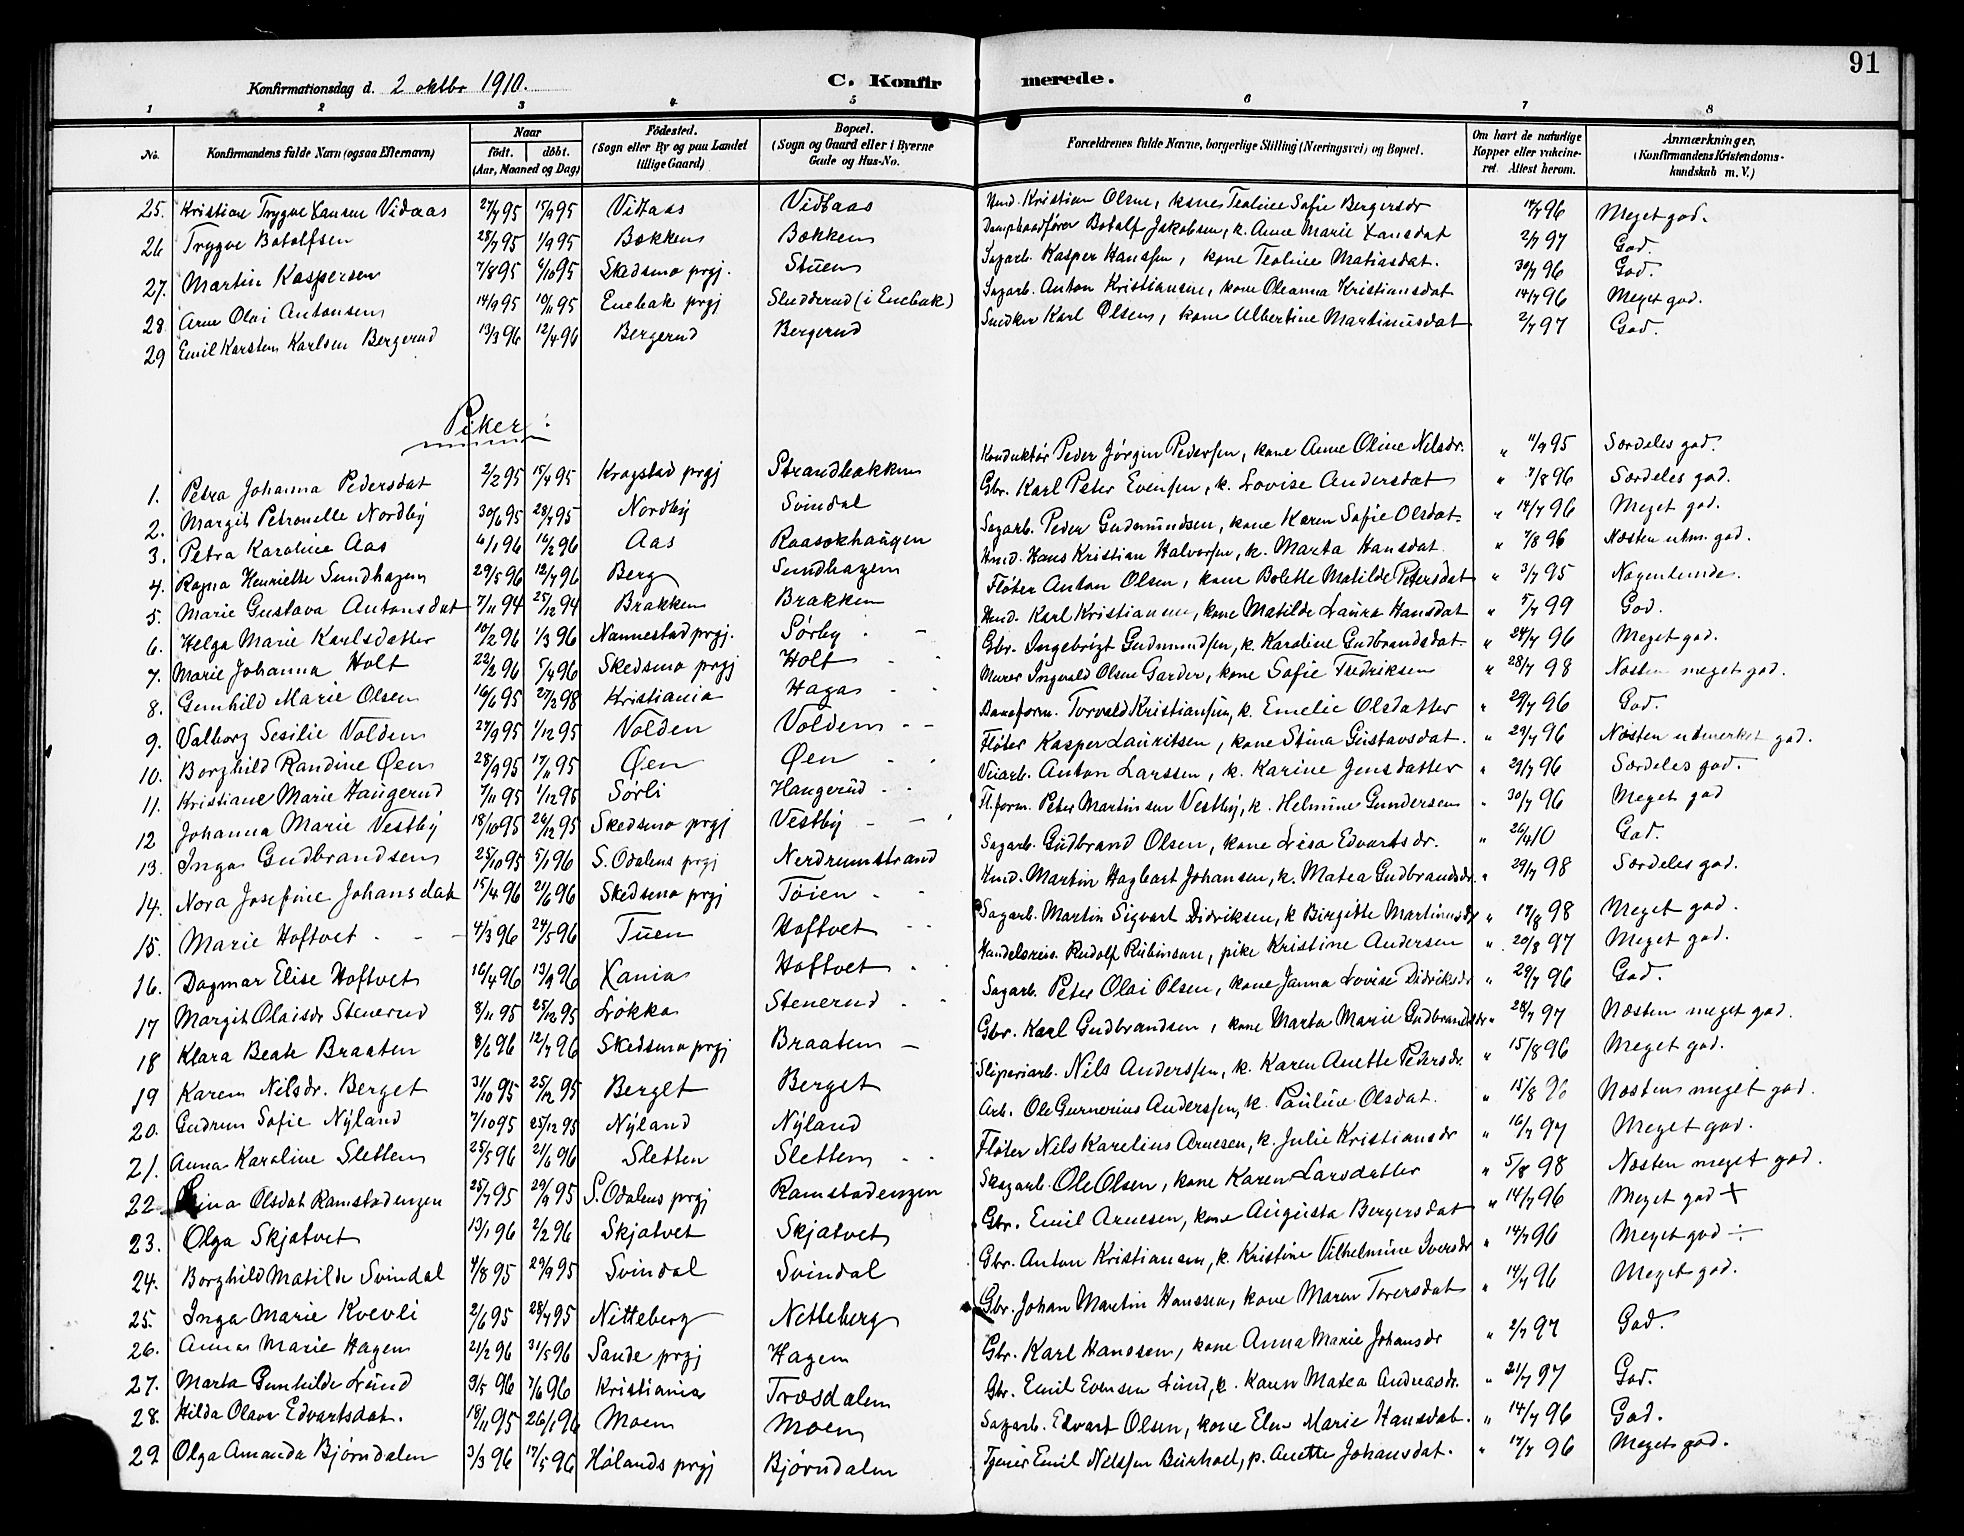 91
Konfirmationsdag d. 2 oktbr 1910. C. Konfirmerede.
1 2 3 4 5 6 7 8
No. Konfirmandens fulde Navn (ogsaa Efternavn) Naar födt. döbt. (Aar, Maaned og Dag) Födested. (Sogn eller By og paa Landet tillige Gaard) Bopæl. (Sogn og Gaard eller i Byerne Gade og Hus-No. Forældrenes fulde Navne, borgerlige Stilling (Næringsvei) og Bopæl. Om havt de naturlige Kopper eller vaccineret. Attest herom. Anmærkninger, (Konfirmandens Kristendomskundskab m. V.)
25. Kristian Trygve Hansen Vidaas 27/7 95 15/9 95 Vidaas Vidaas Hmd. Kristian Olsen, kone Teoline Sofie Bergersdr 17/7 96 Meget god.
26 Trygve Botolfsen 28/7 95 1/9 95 Bakken Bakken Dampbaadfører Botolf Jakobsen, k. Anne Marie Hansdat 2/7 97 God.
27. Martin Kaspersen 7/8 95 6/10 95 Skedsmo prgj. Stuen Sagarb. Kasper Hanssen, kone Teoline Matiasdat. 30/7 96 God.
28. Arne Olai Antonsen 14/9 95 10/11 95 Enebak prgj Sludderud (i Enebak) Sagarb. Anton Kristiansen, kone Oleanna Kristiansdat 14/7 96 Meget god.
29 Emil Karsten Karlsen Bergerud 13/3 96 12/4 96 Bergerud Bergerud Snedker Karl Olsen, kone Albertine Martinusdat 2/7 97 God.
Piker:
1. Petra Johanna Pedersdat 2/2 95 15/4 95 Kragstad prgj Strandbakken Konduktør Peder Jørgen Pedersen, kone Anne Oline Nilsdr. " 11/9 95 Særdeles god.
2. Margit Petronelle Nordby 30/6 95 28/7 95 Nordby Svindal Gbr. Karl Peter Evensen, k. Lovise Andersdat " 7/8 96 Særdeles god.
3. Petra Karoline Aas 6/1 96 16/2 96 Aas Raasokhaugen Sagarb. Peder Gudmundsen, kone Karen Sofie Olsdat. " 14/7 96 Meget god.
4. Ragna Henriette Sundhagen 29/5 96 12/7 96 Berg Sundhagen Hmd. Hans Kristian Halvorsen, k. Marta Hansdat " 7/8 96 Næsten utm. god.
5. Marie Gustava Antonsdat 7/11 94 25/12 94 Brakken Brakken Fløter Anton Olsen, kone Bolette Matilde Petersdat " 3/7 95 Nogenlunde.
6. Helga Marie Karlsdatter 10/2 96 1/3 96 Nannestad prgj. Sørby Hmd. Karl Kristiansen, kone Matilde Laura Hansdat " 5/7 99 God.
7. Marie Johanna Holt 22/2 96 5/4 96 Skedsmo prgj Holt Gbr. Ingebrigt Gudmundsen, k. Karoline Gudbrandsdat " 24/7 96 Meget god.
8. Gunhild Marie Olsen 16/6 95 27/2 98 Kristiania Haga Murer Ingvald Olsen Garder, kone Sofie Fredriksen " 28/7 98 Næsten meget god.
9. Valborg Sesilie Volden 27/9 95 1/12 95 Volden Volden Baneform. Torvald Kristiansen, k. Emelie Olsdatter " 29/7 96 God.
10. Borghild Randine Øen 28/9 95 17/11 95 Øen Øen Fløter Kasper Lauritsen, kone Stina Gustavsdat. " 29/7 96 Næsten utmerket god.
11. Kristiane Marie Haugerud 7/11 95 1/12 95 Sørli Haugerud Veiarb. Anton Larssen, k. Karine Jensdatter " 29/7 96 Særdeles god.
12 Johanna Marie Vestby 18/10 95 26/12 95 Skedsmo prgj Vestby Fl.form. Peter Martinsen Vestby, k. Helmine Gundersen " 30/7 96 Meget god
13. Inga Gudbrandsen 25/10 95 5/1 96 S. Odalens prgj Nerdrumstrand Sagarb. Gudbrand Olsen, kone Lisa Edvartsdr. " 26/4 10 God.
14. Nora Josefine Johansdat 15/4 96 21/6 96 Skedsmo prgj Tøien Hmd. Martin Hagbart Johansen, k. Matea Gudbrandsdr. " 29/7 98 Særdeles god.
15. Marie Hoftvet 4/3 96 24/5 96 Tuen Hoftvet Sagarb. Martin Sigvart Didriksen, k Birgitte Martinusdr " 17/8 98 Meget god.
16. Dagmar Elise Hoftvet 16/4 96 13/9 96 Xania Hoftvet Handelsreis. Rudolf Rubinson, pike Kristine Andersen " 20/8 97 Meget god.
17 Margit Olaisdr Stenerud 8/11 95 25/12 95 Løkka Stenerud Sagarb. Peter Olai Olsen, kone Janna Lovise Didriksdr " 29/7 96 God.
18 Klara Beate Braaten 8/6 96 12/7 96 Skedsmo prgj Braaten Gbr. Karl Gudbrandsen, kone Marta Marie Gudbrandsdr " 28/7 97 Næsten meget god.
19 Karen Nilsdr. Berget 31/10 95 25/12 95 Berget Berget Sliperiarb. Nils Anderssen, k. Karen Anette Pedersdr. " 15/8 96 Meget god.
20. Gudrun Sofie Nyland 7/10 95 25/12 95 Nyland Nyland Arb. Ole Gunerius Anderssen, k. Pauline Olsdat. " 15/8 96 Næsten meget god.
21. Anna Karoline Sletten 25/5 96 21/6 96 Sletten Sletten Fløter Nils Karelius Arnesen, k. Julie Kristiansdr " 16/7 97 Meget god.
22 Olsdat Ramstadengen 25/7 95 29/9 95 S. Odalens prgj Ramstadengen Skogarb. Ole Olsen, kone Karen Larsdatter " 5/8 98 Næsten meget god.
23. Olga Skjatvet 13/1 96 2/2 96 Skjatvet Skjatvet Gbr. Emil Arnesen, kone Augusta Bergersdat " 14/7 96 Meget god +
24. Borghild Matilde Svindal 4/8 95 29/9 95 Svindal Svindal Gbr. Anton Kristiansen, k. Kristine Vilhelmine Iversdr " 14/7 96 Meget god ÷
25. Inga Marie Kvevli 2/6 95 28/7 95 Nitteberg Netteberg Gbr. Johan Martin Hanssen, kone Maren Toversdat " 14/7 96 Meget god.
26. Anna Marie Hagen 21/2 96 31/5 96 Sande prgj Hagen Gbr. Karl Hanssen, kone Anna Marie Johansdr " 2/7 97 God.
27. Marta Gunhilde Lund 3/5 96 7/6 96 Kristiania Træsdalen Gbr. Emil Evensen Lund, k. Karen Matea Andreasdr. " 21/7 97 God.
28. Hilda Olava Edvartsdat. 18/11 95 26/1 96 Moen Moen Sagarb. Edvart Olsen, kone Elen Marie Hansdat. " 14/7 96 God.
29 Olga Amanda Bjørndalen 3/3 96 17/5 96 Hølands prgj Bjørndalen Tjener Emil Nilssen Burhol, p. Anette Johansdat. " 17/7 96 Meget god.